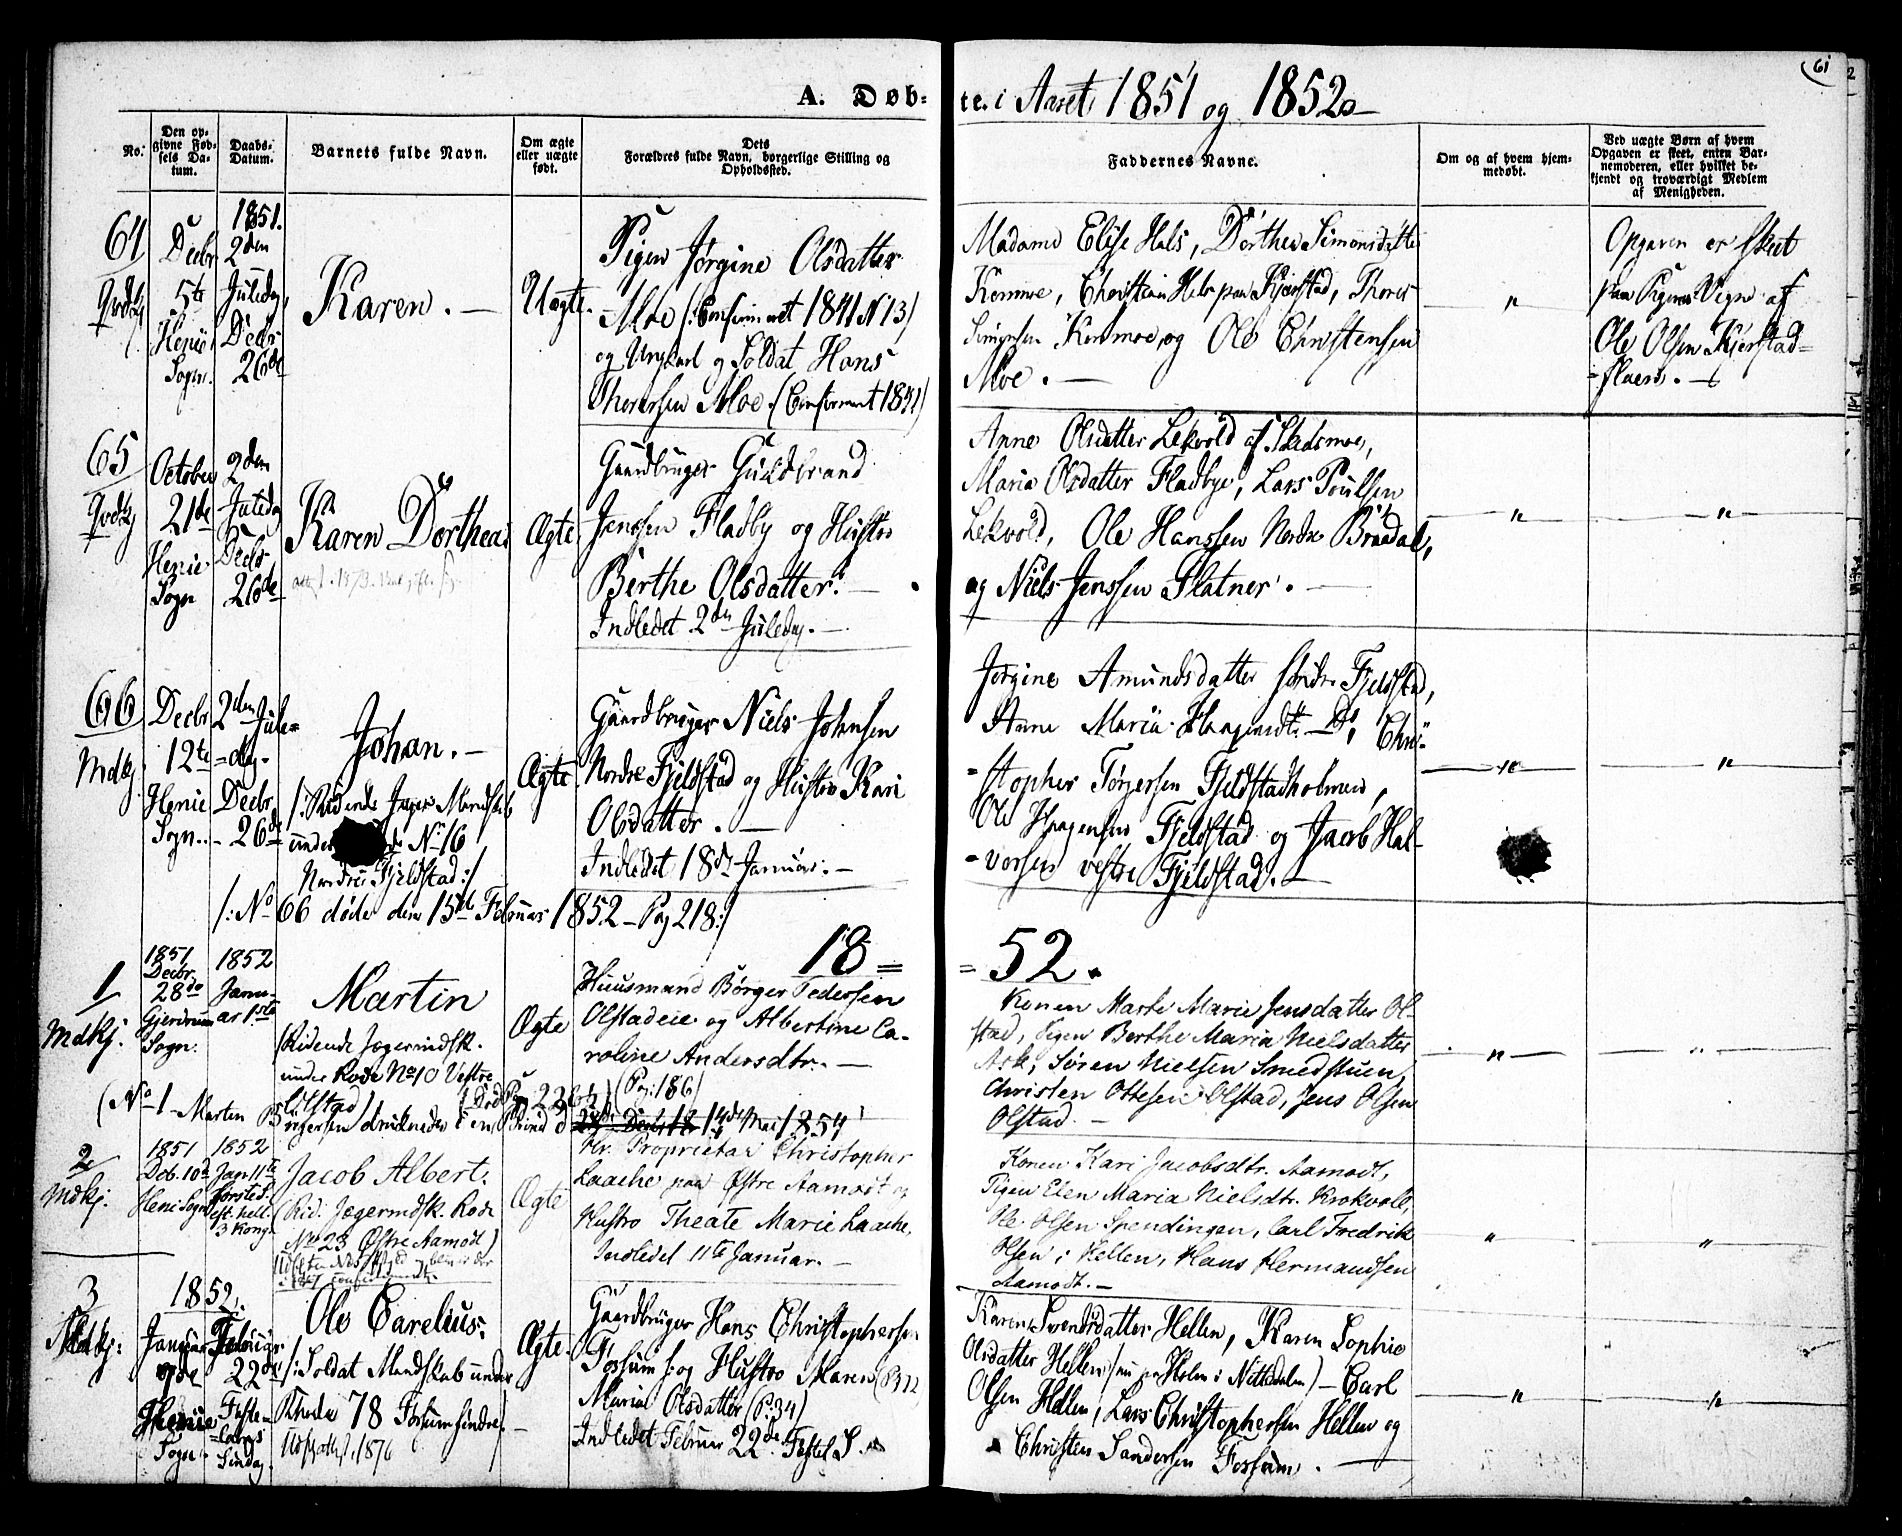 61
A. Døb-
te. i Aaret 1851 og 1852
No.
Den op-
givne Fød-
sels Da-
tum.
Daabs-
Datum.
Barnets fulde Navn.
Om ægte
eller uægte
født.
Dets
Forældres fulde Navn, borgerlige Stilling og
Opholdssted.
Faddernes Navne.
Om og af hvem hjem-
medøbt.
Ved uægte Børn af hvem
Opgaven er skeet, enten Bar-
nemoderen, eller hvilket be-
kjendt og troværdigt Medlem
af Menigheden.
64
Qvdkj
Decbr
5te
Henie
Sogn.
1851.
2den
Juledag,
Decbr
26de
Karen. —
Uægte.
Pigen Jørgine Olsdatter
Moe (: Confirmeret 1841 N 13)
og Ungkarl og Soldat Hans
Thorersen Moe. (Confirmeret 1842)
Madame Elise Hals, Dorthea Simonsdatter
Kommoe, Christian Hals paa Kjærstad, Thorer
Simonsen Kommoe, og Ole Christensen
Moe. —
"
Opgaven er skeet
paa Pigens Vegne af
Ole Olsen Kjærstad-
-flaen. —
65
Qvdkj
October
21de
Henie
Sogn
2den
Juledag
Decbr
26de
Karen Dorthea.
Ægte.
Gaardbruger Guldbrand
Jenssen Fladby og Hustro
Berthe Olsdatter. —
Indledet 2den Juledag. —
Anne Olsdatter Lekvold af Stadsmoe,
Maria Olsdatter Fladbye, Lars Poulsen
Lekvold, Ole Hanssen Nordre Braadal,
og Niels Jenssen Platner. —
"
"
66
Mdkj.
Decbr
12te
Henie
Sogn.
2den Jule-
-dag.
Decbr
26de
Johan. —
/: Ridende Jæger Mandskab
under N 16
Nordre Fjeldstad :/
Ægte.
Gaardbruger Niels Johnsen
Nordre Fjeldstad og Hustro Kari
Olsdatter. —
Indledet 18de Januar. —
Jørgine Amundsdatter søndre Fjeldstad,
Anne Maria Haagensdt. Do, Chri-
-stopher Torgersen Fjeldstadholmen,
Ole Haagensen Fjeldstad og Jacob Hal-
-vorsen vestre Fjeldstad. —
"
"
/: No 66 døde den 15de Februar 1852 – Pag 218 :/
18 =
= 52.
1
Mdkj.
1851
Decbr.
28de
Gjerdrum
Sogn.
1852
Janu-
ar 1ste
Martin
(Ridende Jægermdsk.
under Rode No 10 Vestre
Olstad)
Ægte
Huusmand Børger Pedersen
Olstadeie og Albertine Ca-
roline Andersdtr. —
(Pag: 186)
Konen Marte Marie Jensdatter Ol-
stad, Pigen Berthe Maria Nielsdatter
Ask, Søren Nielsen Smedstuen,
Christen Ottesen Olstad, Jens Olsen
Olstad. —
"
"
(No 1 – Martin Børgersen druknede i en Brønd d 14de Mai 1854
2
Mdkj.
1851
Deb. 10d
Heni Sogn
1852
Jan. 11te
første S.
eft. hell.
3 Kong.
Jacob Albert.
(Rid. Jægermdsk. Rode
No 23 Østre Aamodt)
Ægte
Hr. Proprietær Christopher
Laache paa Østre Aamodt og
Hustro Theate Marie Laache.
Indledet 11te Januar. —
Konen Kari Jacobsdtr. Aamodt,
Pigen Elen Maria Nielsdtr. Krokvold,
Ole Olsen Spendingen, Carl Fredrik
Olsen i Hellen, Hans Hermandsen
Aamodt. —
"
"
3
Mdkj:
1852.
Januar
Henie
Sogn.
Februar
22de
Faste-
-lavns
Søndag.
Ole Carelius.
/: Soldat Mandskab under
Rhode 78 Fossum søndre.
Udsk. attest. 1876
Ægte.
Gaardbruger Hans Christophersen
Fossum og Hustro Maren
Maria Olsdatter (P. 34)
Indledet Februar 22de Fastel. S.
Karen Svendsdatter Hellen, Karen Sophie
Olsdatter Hellen (nu paa Holm i Nittedalen) – Carl
Olsen Hellen, Lars Christophersen Hellen og
Christen Sandersen Fossum. —
"
"